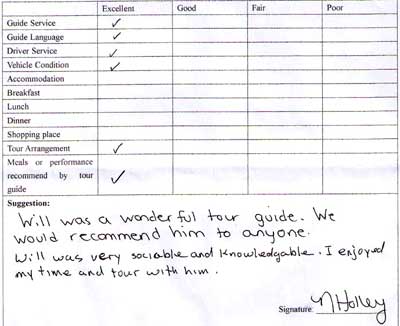 Excellent Good Fair Poor
Guide Service ✓
Guide Language ✓
Driver Service ✓
Vehicle Condition ✓
Accommodation
Breakfast
Lunch
Dinner
Shopping place
Tour Arrangement ✓
Meals or performance
recommend by tour ✓
guide
Suggestion:
Will was a wonderful tour guide. We
would recommend him to anyone.
Will was very sociable and knowledgable. I enjoyed
my time and tour with him.
Signature: NHolley